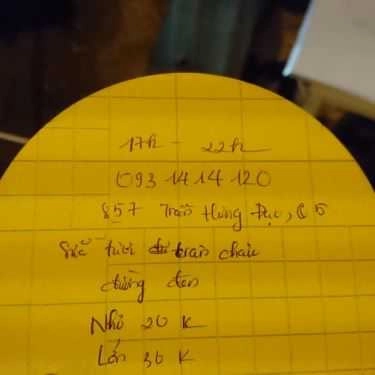 17h - 22h
093 14 14 120
857 Trần Hưng Đạo, Q5
Sữa tươi trân châu
đường đen
Nhỏ 20 K
Lớn 30 K